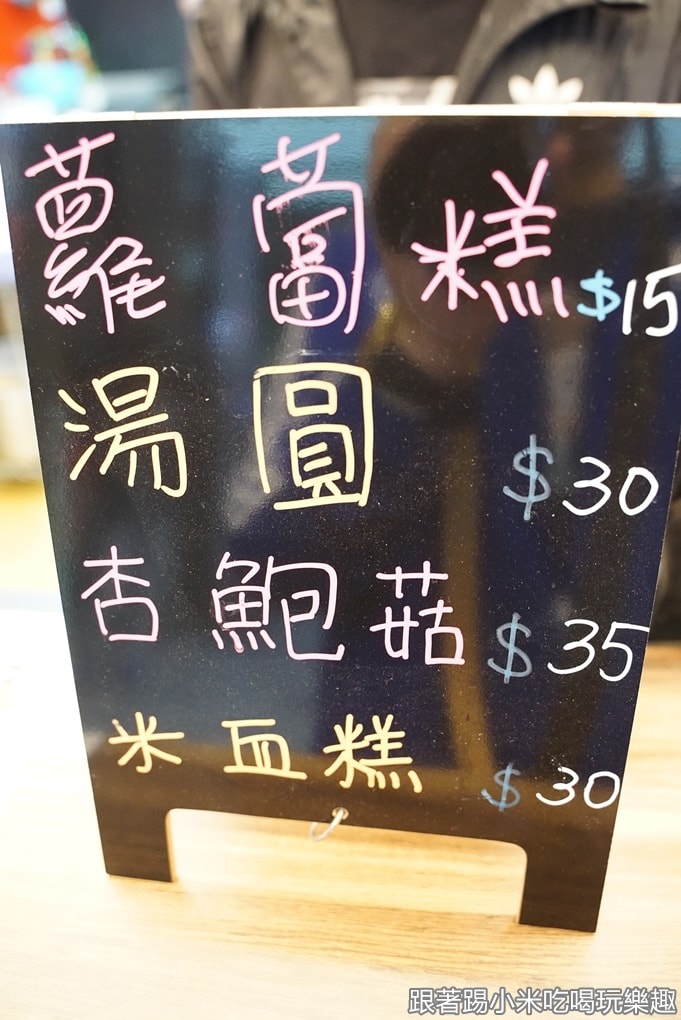 蘿蔔糕 $15
湯圓 $30
杏鮑菇 $35
米血糕 $30
跟著踢小米吃喝玩樂趣